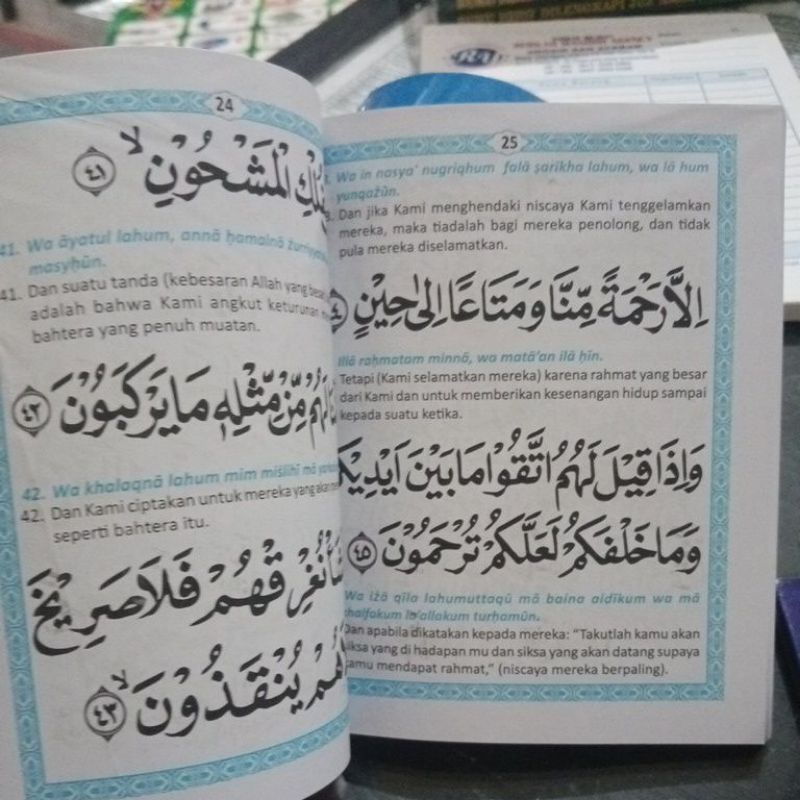 24
الْمَشْحُوْنِۙ ٤١
41. Wa āyatul lahum, annā ḥamalnā
masyḥūn.
41. Dan suatu tanda (kebesaran Allah yang
adalah bahwa Kami angkut keturunan
bahtera yang penuh muatan.
مِّنْ مِّثْلِهٖ مَا يَرْكَبُوْنَ ٤٢
42. Wa khalaqnā lahum mim miṡlihī mā
42. Dan Kami ciptakan untuk mereka yang akan
seperti bahtera itu.
نُغْرِقْهُمْ فَلَا صَرِيْخَ
يُنْقَذُوْنَۙ ٤٣
25
Wa in nasya' nugriqhum falā ṣarīkha lahum, wa lā hum
yunqażūn.
Dan jika Kami menghendaki niscaya Kami tenggelamkan
mereka, maka tiadalah bagi mereka penolong, dan tidak
pula mereka diselamatkan.
اِلَّا رَحْمَةً مِّنَّا وَمَتَاعًا اِلٰى حِيْنٍ
Illā raḥmatam minnā, wa matā'an ilā ḥīn.
Tetapi (Kami selamatkan mereka) karena rahmat yang besar
dari Kami dan untuk memberikan kesenangan hidup sampai
kepada suatu ketika.
وَاِذَا قِيْلَ لَهُمُ اتَّقُوْا مَا بَيْنَ
وَمَا خَلْفَكُمْ لَعَلَّكُمْ تُرْحَمُوْنَ ٤٥
Wa iżā qīla lahumuttaqū mā baina aidīkum wa mā
khalfakum la'allakum turḥamūn.
Dan apabila dikatakan kepada mereka: "Takutlah kamu akan
siksa yang di hadapan mu dan siksa yang akan datang supaya
kamu mendapat rahmat," (niscaya mereka berpaling).